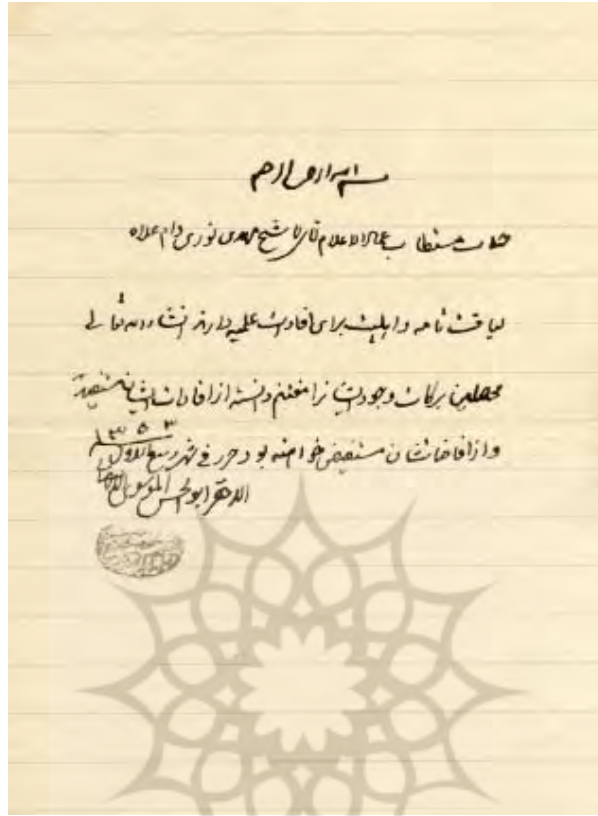 بسم الله الرحمن الرحیم
جناب مستطاب عماد الاعلام آقای آقا شیخ مهدی نوری دام علاه
لیاقت تامه و اهلیت برای افادات علمیه دارند انشاء الله تعالی
محصلین برکات وجود ایشان را مغتنم دانسته از افادات ایشان مستفید
و از افاضاتشان مستفیض خواهند بود حرر فی شهر ربیع الاول ۱۳۵۳
الاحقر ابوالحسن الموسوی الاصفهانی